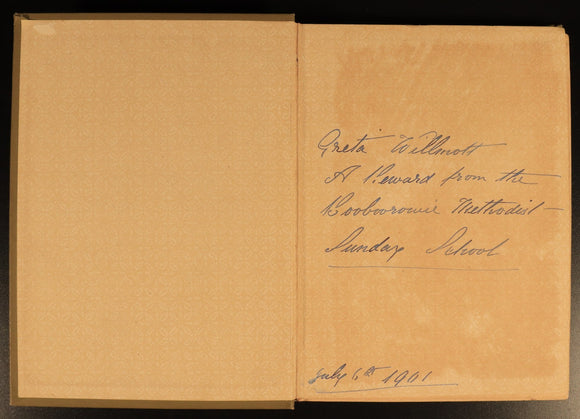 Greta Willmott
A Reward from the
Booboorowie Methodist —
Sunday School
July 6th 1901